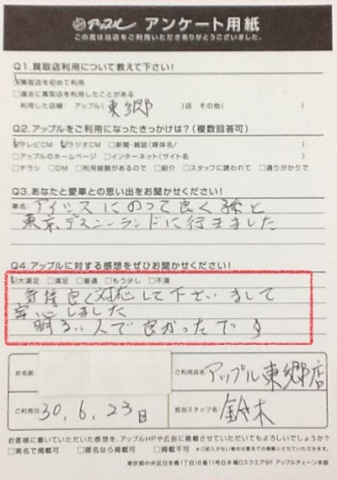 アップル アンケート用紙
この度は当店をご利用いただきありがとうございました。
Q1.買取店利用について教えて下さい!
☑買取店を初めて利用
□過去に買取店を利用したことがある
利用した店舗: アップル(東郷)店 その他( )
Q2.アップルをご利用になったきっかけは?(複数回答可)
☑テレビCM ☑ラジオCM □新聞・雑誌(媒体名/ )
□アップルのホームページ □インターネット(サイト名 )
□チラシ □DM □利用経験があるので □紹介 □スタッフに誘われて □通りがかりで
Q3.あなたと愛車との思い出をお聞かせください!
車名: アイシスにのって良く孫と
東京デズニーランドに行きました
Q4.アップルに対する感想をぜひお聞かせください!
☑大満足 □満足 □普通 □もう少し □不満
気持良く対応して下さいまして
安心しました
明るい人で良かったです
お名前
ご利用店名 アップル東郷店
ご利用日 30.6.23日
担当スタッフ名 鈴木
お客様に書いていただいた感想を、アップルHPや広告に掲載させていただいてもよろしいでしょうか?
□実名で掲載可 □匿名なら掲載可 □掲載不可
東京都中央区日本橋1丁目16番11号日本橋DスクエアBF アップルチェーン本部